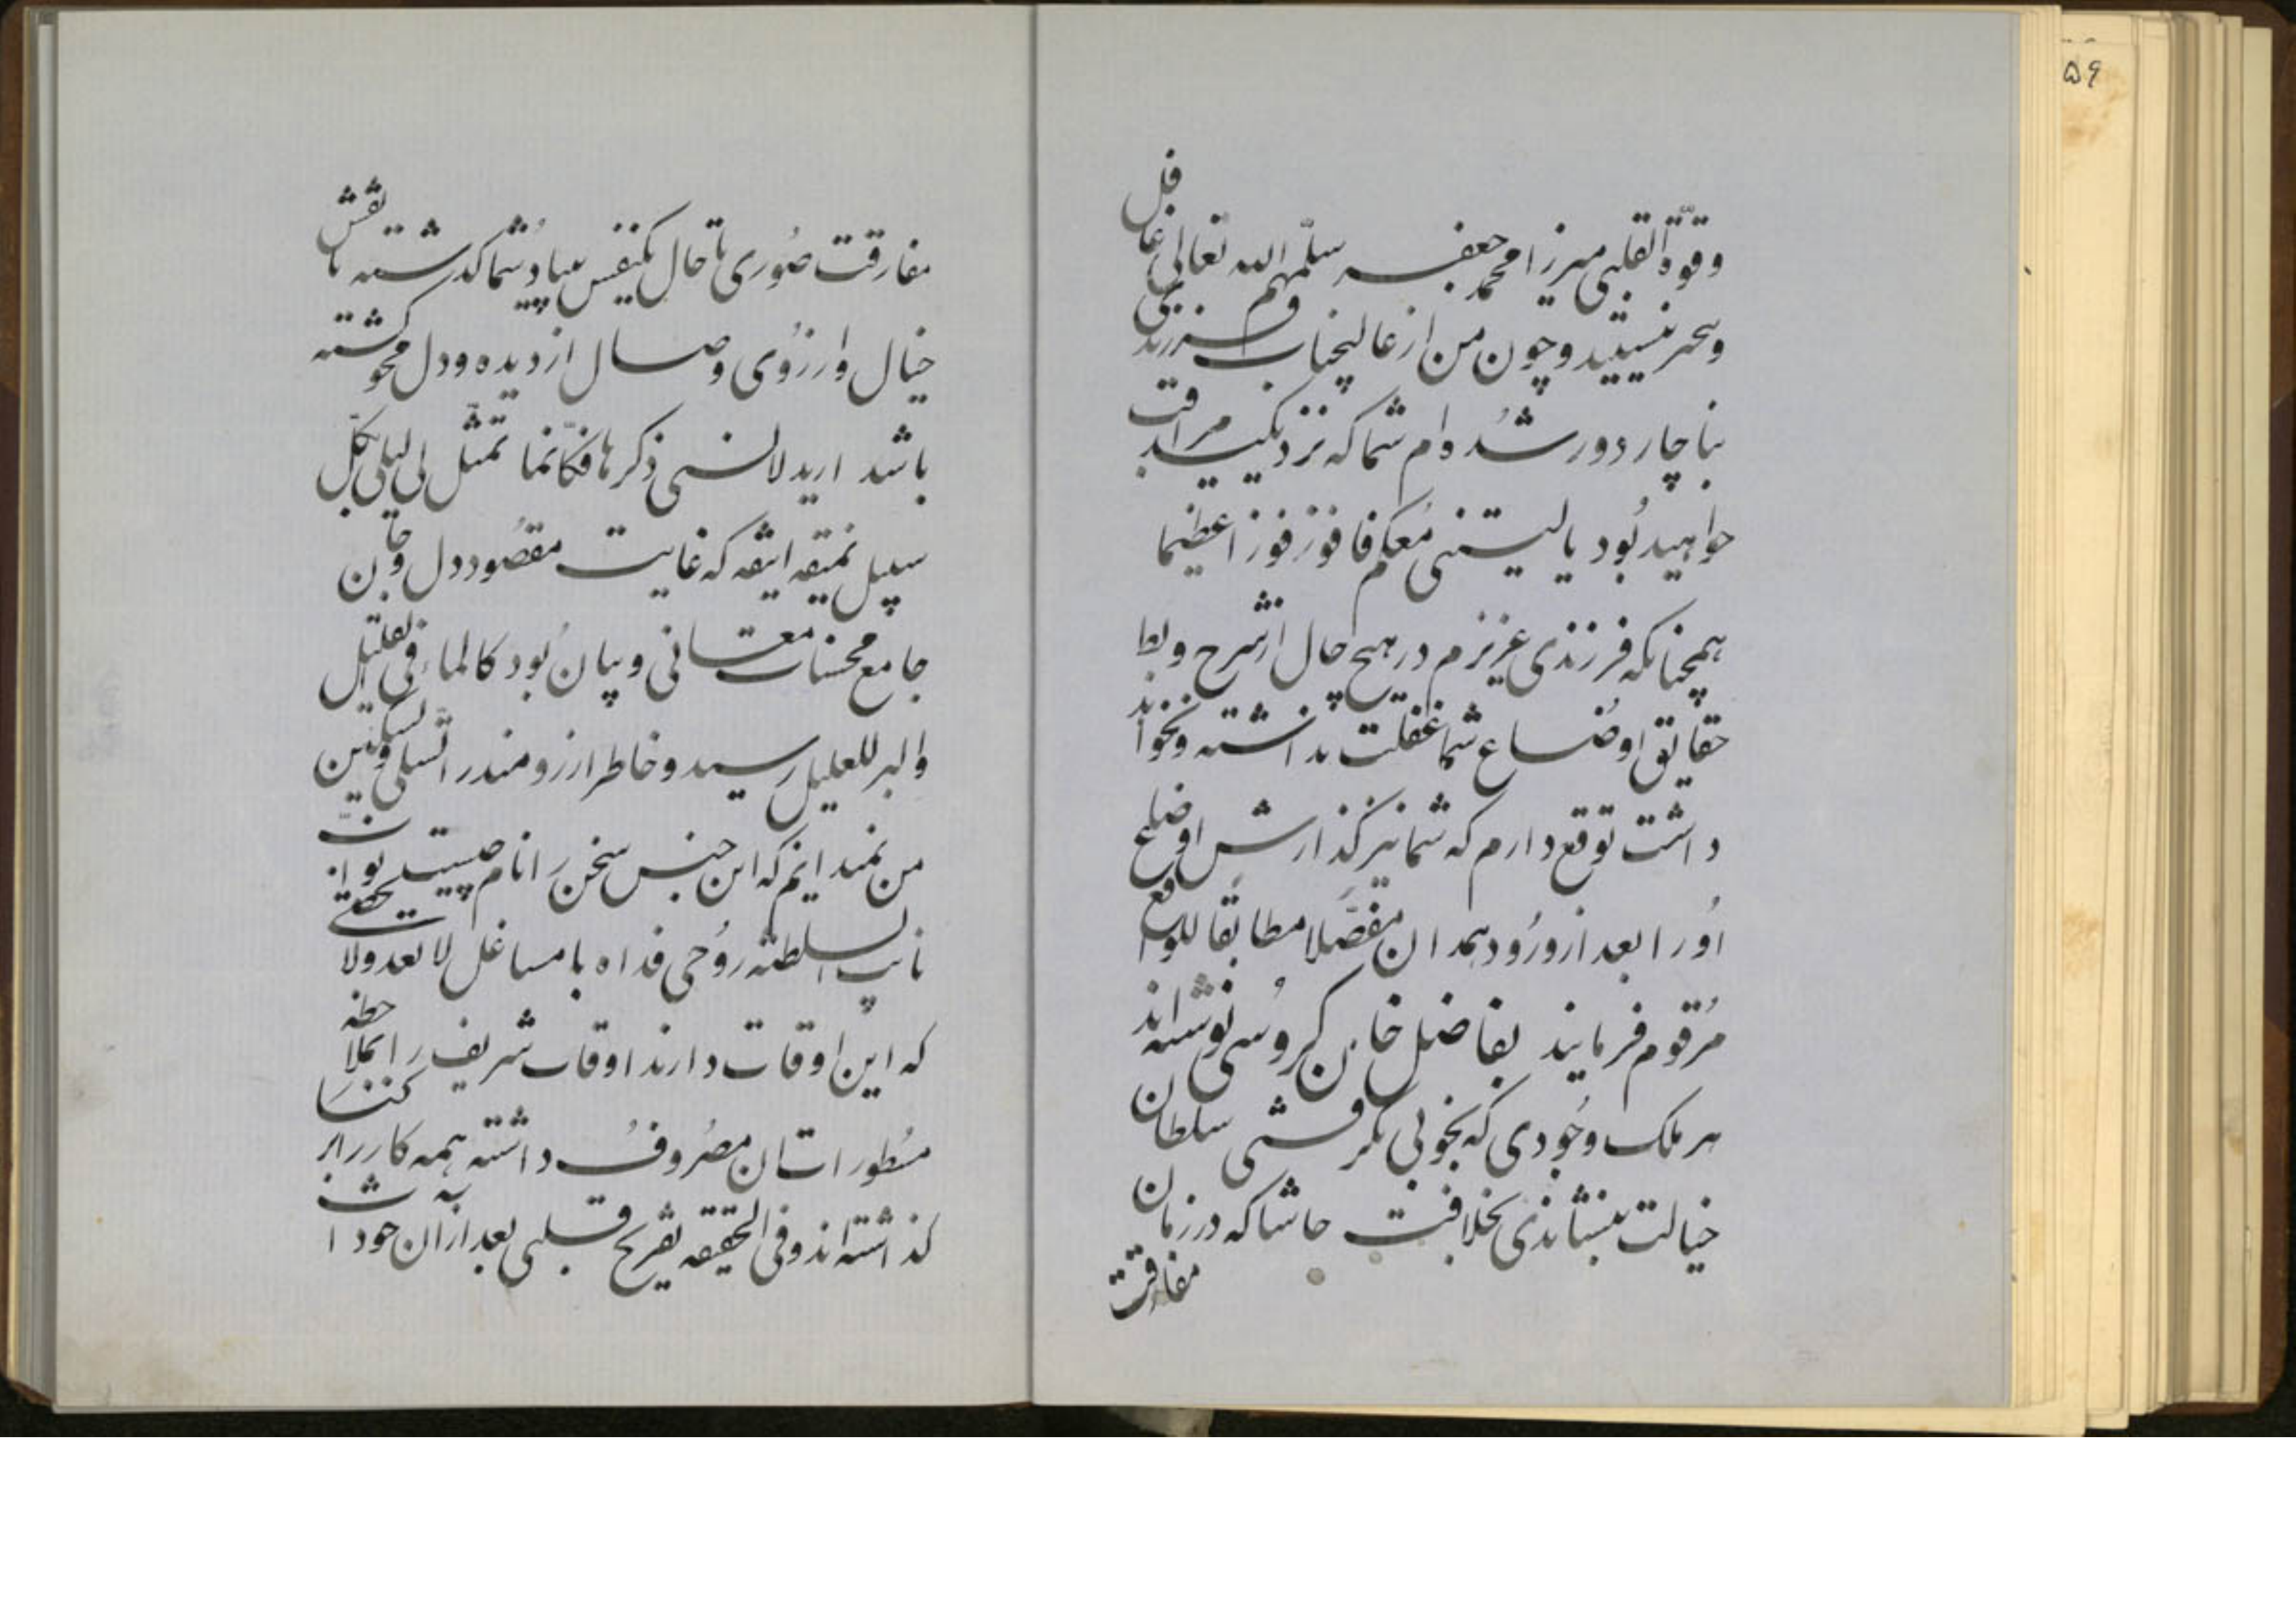 ۵۶
وقوّة القلبی میرزا محمد جعفر سلّمهم الله تعالی غافل
وبیخبر نیستید و چون من از عالیجناب و فرزندی
بناچار دور شده ام شما که نزدیکید مراقب
خواهید بود یا لیتنی معکم فافوز فوزا عظیما
همچنانکه فرزندی عزیزم در هیچ حال از شرح و بط
حقایق اوضاع شما غفلت نداشته و نخواند
داشت توقع دارم که شما نیز گذارش اوضاع
اورا بعد از ورود همدان مفصّلا مطابقا للواقع
مرقوم فرمایند بفاضل خان کروسی نوشته اند
هر ملک وجودی که بخوبی بگرفتی سلطان
خیالت بنشاندی بخلافت حاشا که در زمان
مفارقت
مفارقت صوری تا حال یکنفس بیاد شما گذشته یا نقش
خیال و ارزوی وصال از دیده و دل محو گشته
باشد ارید لانسی ذکرها فکانّما تمثّل لی لیلی بکلّ
سبیل نمیقه انیقه که غایت مقصود دل و جان
جامع محسنات معانی و بیان بود کالماء فی الغلیل
والبرء للعلیل رسید و خاطر ارزومند را تسلی و تسکین
من نمیدانم که این جنس سخن را نام چیست نواب
نایب السلطنه روحی فداه با مشاغل لا تعد ولا تحصی
که این اوقات دارند اوقات شریف را بملاحظه
مسطورات ان مصروف داشته همه کار را بر کنار
گذاشته اند و فی الحقیقه تفریح قلبی بعد از آن خود